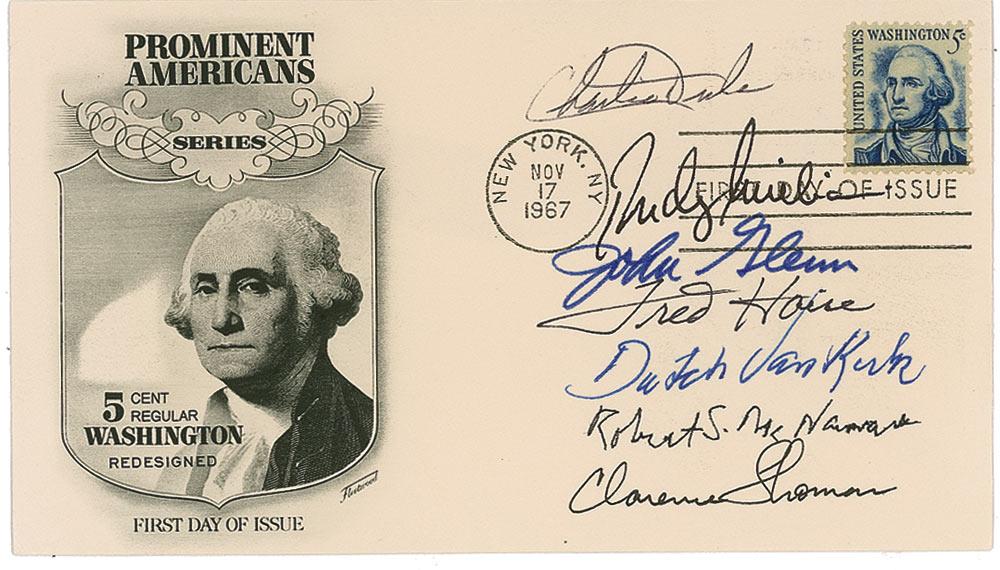 PROMINENT
AMERICANS
SERIES
5 CENT
REGULAR
WASHINGTON
REDESIGNED
Fleetwood
FIRST DAY OF ISSUE
UNITED STATES
WASHINGTON 5¢
NEW YORK, NY
NOV
17
1967
FIRST DAY OF ISSUE
Rudy
John Glenn
Fred Haise
Dutch Van Kirk
Robert S. McNamara
Clarence